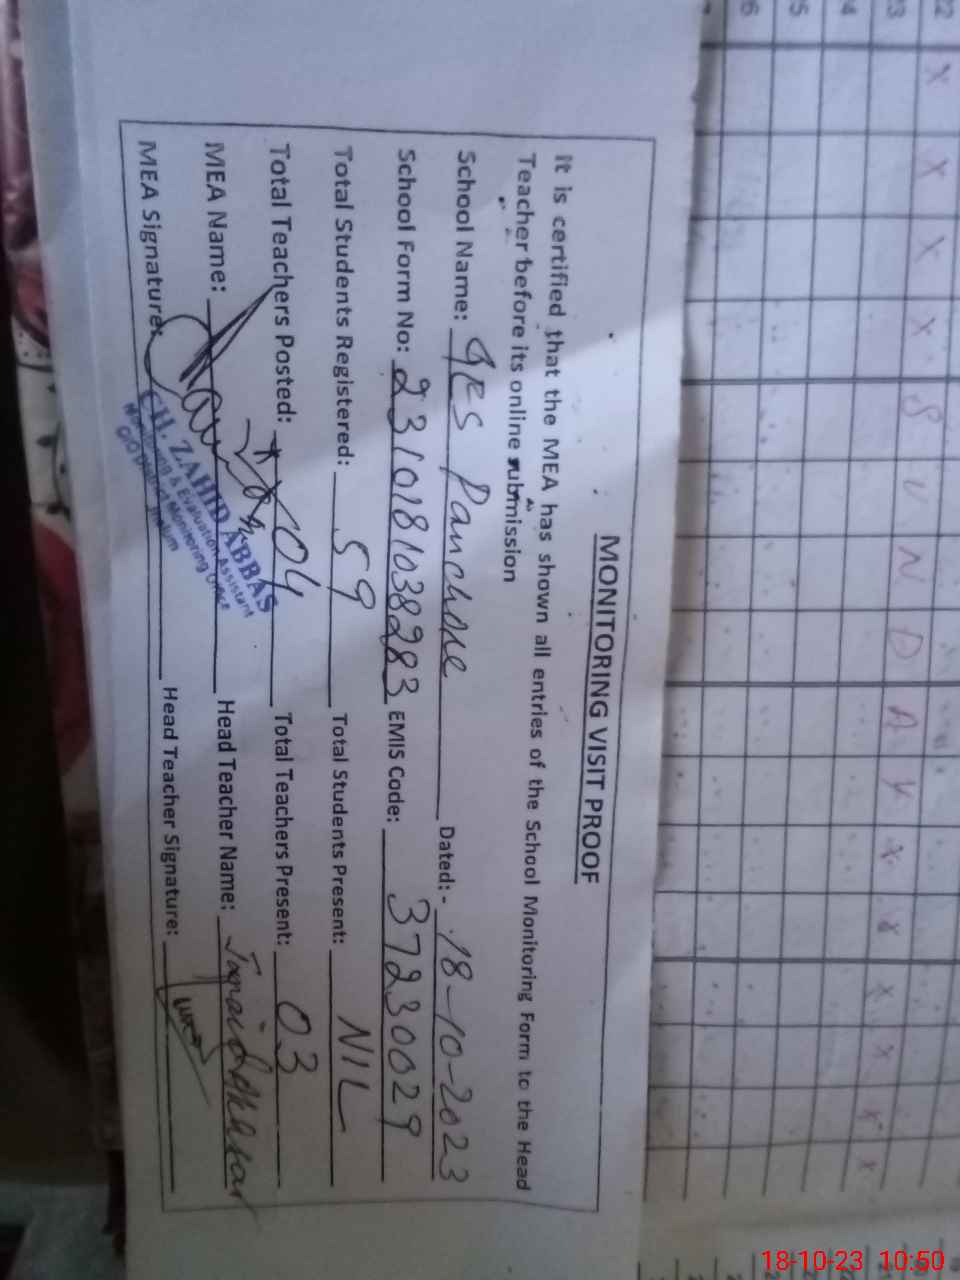 MONITORING VISIT PROOF
It is certified that the MEA has shown all entries of the School Monitoring Form to the Head
Teacher before its online submission
School Name: GES Panchore Dated:- 18-10-2023
School Form No: 2310181038283 EMIS Code: 37230029
Total Students Registered: 59 Total Students Present: NIL
Total Teachers Posted: 04 Total Teachers Present: 03
MEA Name: Head Teacher Name:
MEA Signature: Head Teacher Signature:
CH. ZAHID ABBAS
Monitoring & Evaluation Assistant
O/O District Monitoring Office
Jhelum
22
23
24
25
26
x x x x S U N D A Y x x x x x x
18-10-23 10:50